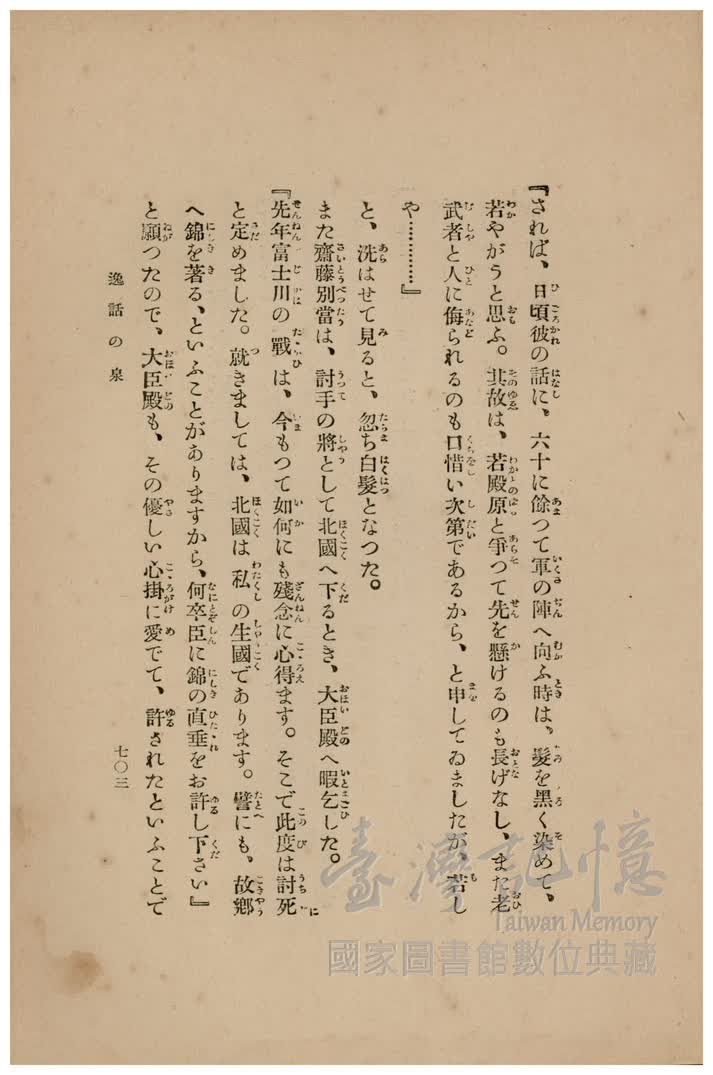 『されば、日頃彼の話に、六十に餘つて軍の陣へ向ふ時は、髮を黑く染めて、
若やがうと思ふ。其故は、若殿原と爭つて先を懸けるのも長げなし、また老
武者と人に侮られるのも口惜い次第であるから、と申してゐましたが、若し
や……………』
と、洗はせて見ると、忽ち白髮となつた。
また齋藤別當は、討手の將として北國へ下るとき、大臣殿へ暇乞した。
『先年富士川の戰は、今もつて如何にも殘念に心得ます。そこで此度は討死に
と定めました。就きましては、北國は私の生國であります。譬にも、故鄕
へ錦を著る、といふことがありますから、何卒臣に錦の直垂をお許し下さい』
と願つたので、大臣殿も、その優しい心掛に愛でて、許されたといふことで
逸話の泉
七〇三
臺灣記憶
Taiwan Memory
國家圖書館數位典藏